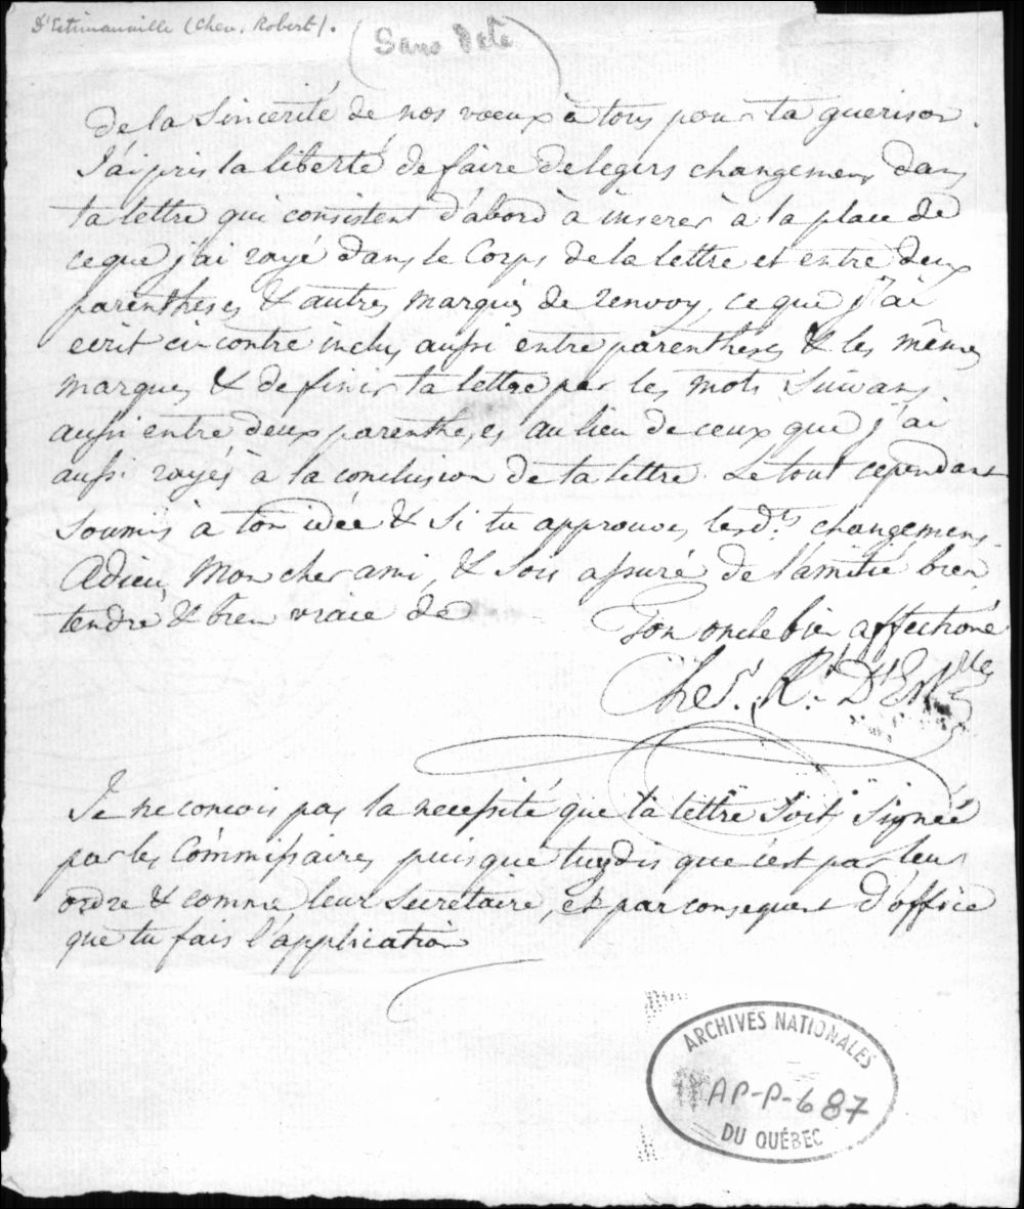 D'Estimauville (Chev. Robert).
Sans Date
de la Sincerité de nos vœux à tous pour ta guerison.
J'ai pris la liberté de faire de legers changemens dans
ta lettre qui consistent d'abord à inserer à la place de
ce que j'ai rayé dans le Corps de la lettre et entre deux
parentheses & autres marques de renvoy, ce que j'ai
ecrit ci contre inclus aussi entre parentheses & les mêmes
marques & de finir ta lettre par les mots Suivans
aussi entre deux parentheses au lieu de ceux que j'ai
aussi rayés à la conclusion de ta lettre. Le tout cependant
Soumis à ton idée & Si tu approuves lesdts changemens.
Adieu, Mon cher ami, & Sois assuré de l'amitié bien
tendre & bien vraie de
Ton oncle bien affectioné
Cher. Rt. D'Estlle
Je ne concois pas la necessité que ta lettre Soit Signée
par les Commissaires puisque tu y dis que c'est par leur
ordre & comme leur Secretaire, & par consequent d'office
que tu fais l'application
ARCHIVES NATIONALES
AP-P-687
DU QUÉBEC